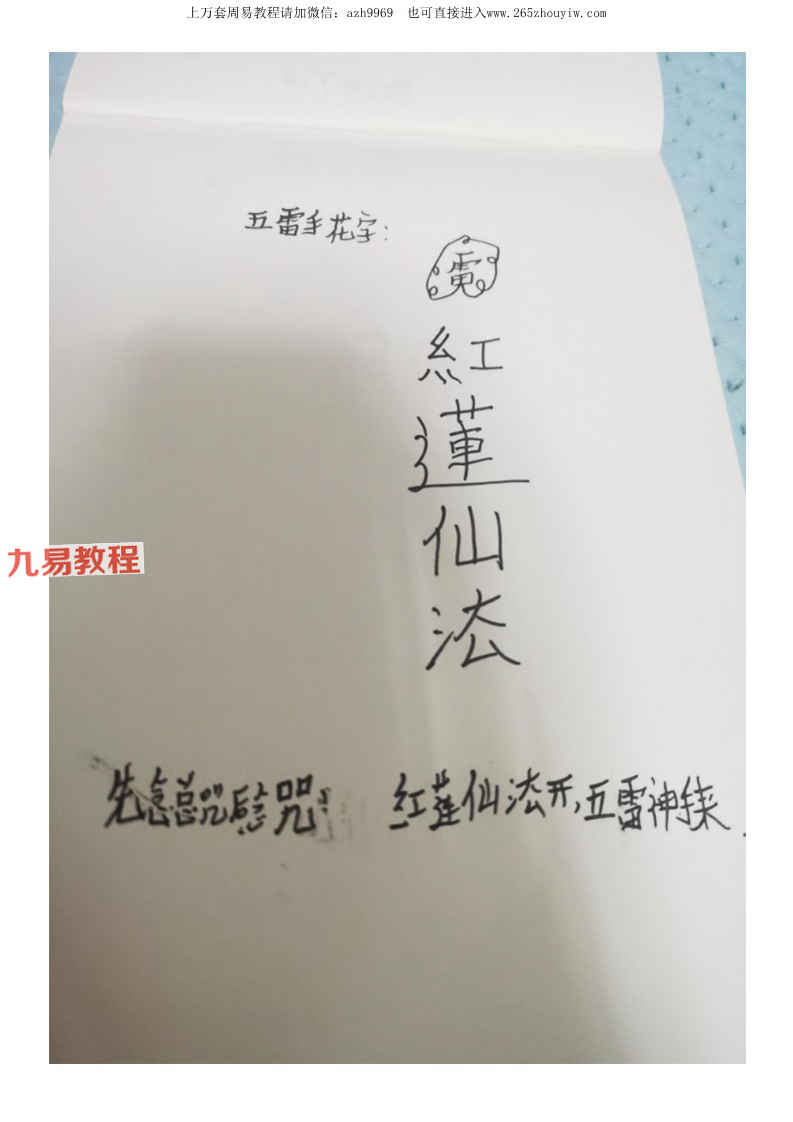 上万套周易教程请加微信：azh9969 也可直接进入www.265zhouyiw.com
五雷手花字：
紅
蓮
仙
法
九易教程
先念总咒后念咒：
红莲仙法开，五雷神接